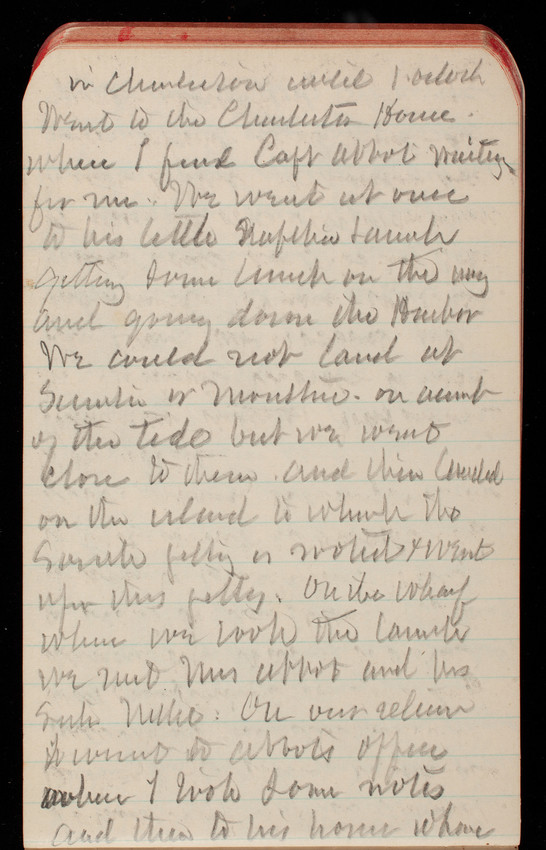 in Charleston until 1 oclock
Went to the Charleston House.
where I find Capt Abbot waiting
for me. We went at once
to his little Naptha Launch
getting some lunch on the way
and going down the Harbor
We could not land at
Sumter or Moultrie. on acunt
of the Tide but we went
close to them. and then landed
on the island to which the
South jetty is rooted & went
upon this jetty. On the wharf
where we took the launch
we met Mrs Abbot and his
On our return
went to Abbots office
where I took some notes
and then to his home where